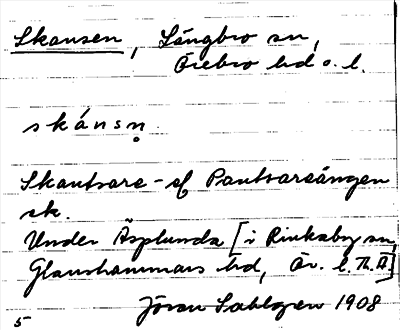 Skansen, Längbro sn,
Örebro hd o. l.
skánsn̥.
Skantvare - cf Pantvarsängen
sk.
Under Äsplunda [i Rinkaby sn,
Glanshammars hd, Ör. l. Th.A]
Jöran Sahlgren 1908
5